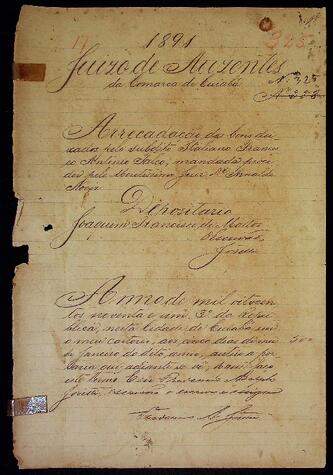 17
1891
325
Juizo de Auzentes
Nº 325
da Comarca de Cuiabá
Arrecadação dos bens dei
xados pelo subdito Italiano Francis
co Antonio Falco, mandada proce
der pelo Juiz
Depositario
Joaquim Francisco de Mattos
Escrivão
Anno de mil oitocen
tos noventa e um, 3º da Repu
blica, nesta Cidade de Cuiabá em
o meu cartorio, aos cinco dias do mez
de Janeiro do dito anno, autuo a por
taria que adiante se vê; do que faço
este termo. Eu
escrivão o escrevi e assigno